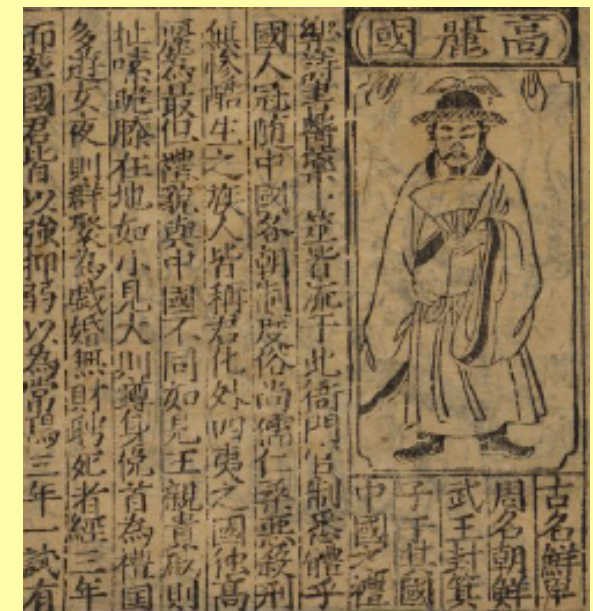 高麗國
古名鮮卑
周名朝鮮
武王封箕
子于其國
中國之禮
樂詩書醫藥卜筮皆流于此衙門官制悉體乎
國人冠随中國各朝制度俗尚儒仁柔惡殺刑
無慘酷生之族人皆稱君化外四夷之國獨高
麗為最但禮貌與中國不同如見王親貴戚則
扯嗉跪膝在地如小見大則蹲身俛首為禮国
多遊女夜則群聚為戲婚無財聘死者經三年
而塟國君皆以強抑弱以為常焉三年一試有